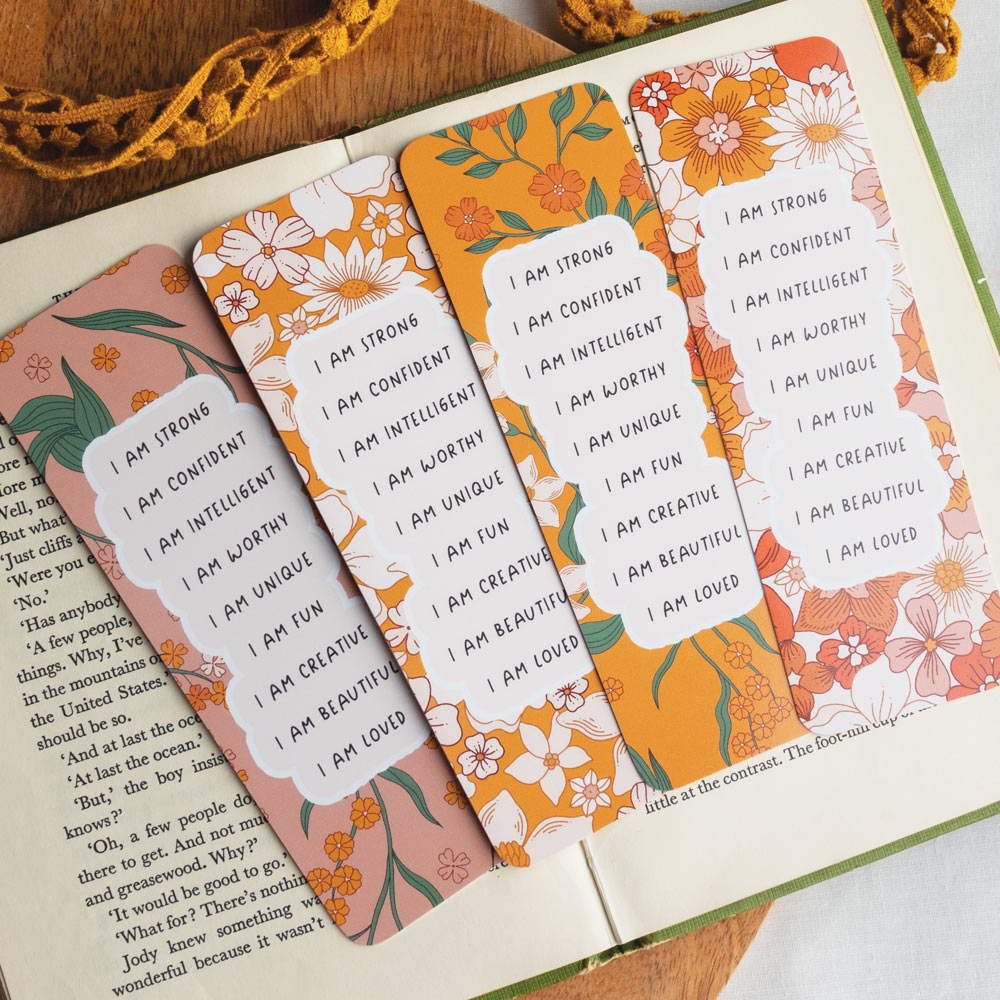 I AM STRONG
I AM CONFIDENT
I AM INTELLIGENT
I AM WORTHY
I AM UNIQUE
I AM FUN
I AM CREATIVE
I AM BEAUTIFUL
I AM LOVED
I AM STRONG
I AM CONFIDENT
I AM INTELLIGENT
I AM WORTHY
I AM UNIQUE
I AM FUN
I AM CREATIVE
I AM BEAUTIFU
I AM LOVED
I AM STRONG
I AM CONFIDENT
I AM INTELLIGENT
I AM WORTHY
I AM UNIQUE
I AM FUN
I AM CREATIVE
I AM BEAUTIFUL
I AM LOVED
I AM STRONG
I AM CONFIDENT
I AM INTELLIGENT
I AM WORTHY
I AM UNIQUE
I AM FUN
I AM CREATIVE
I AM BEAUTIFUL
I AM LOVED
Well, no
But what
'Just cliffs a
'Were you e
'No.'
'Has anybody
'A few people,
things. Why, I've
in the mountains or
the United States.
should be so.
'And at last the oce
'At last the ocean.'
'But,' the boy insis
knows?'
'Oh, a few people do
there to get. And not muc
and greasewood. Why?'
'It would be good to go.'
'What for? There's nothin
Jody knew something wa
wonderful because it wasn't
little at the contrast. The foot-hill cup of